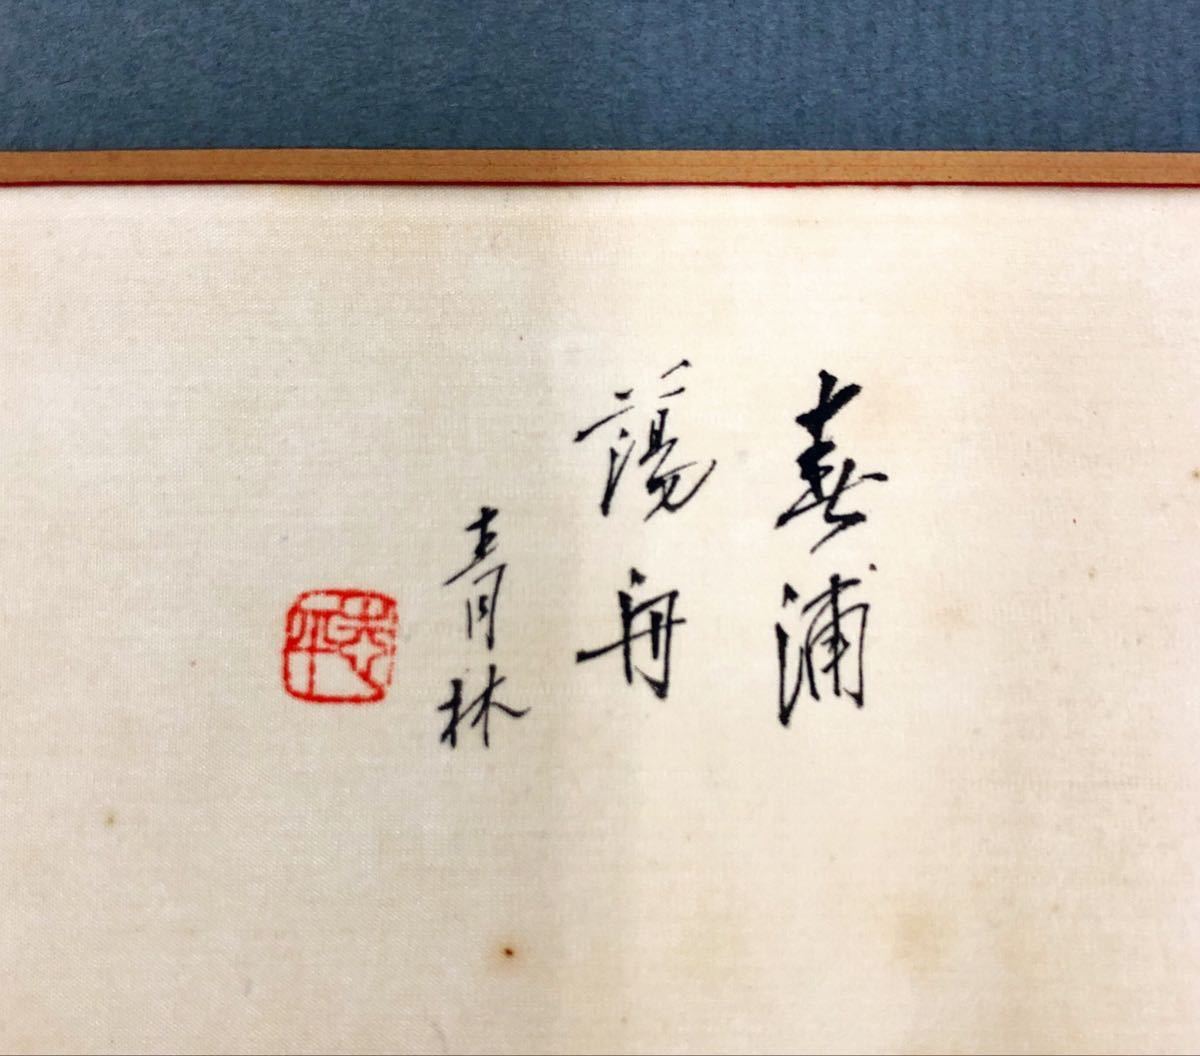 春浦
蕩舟
青林